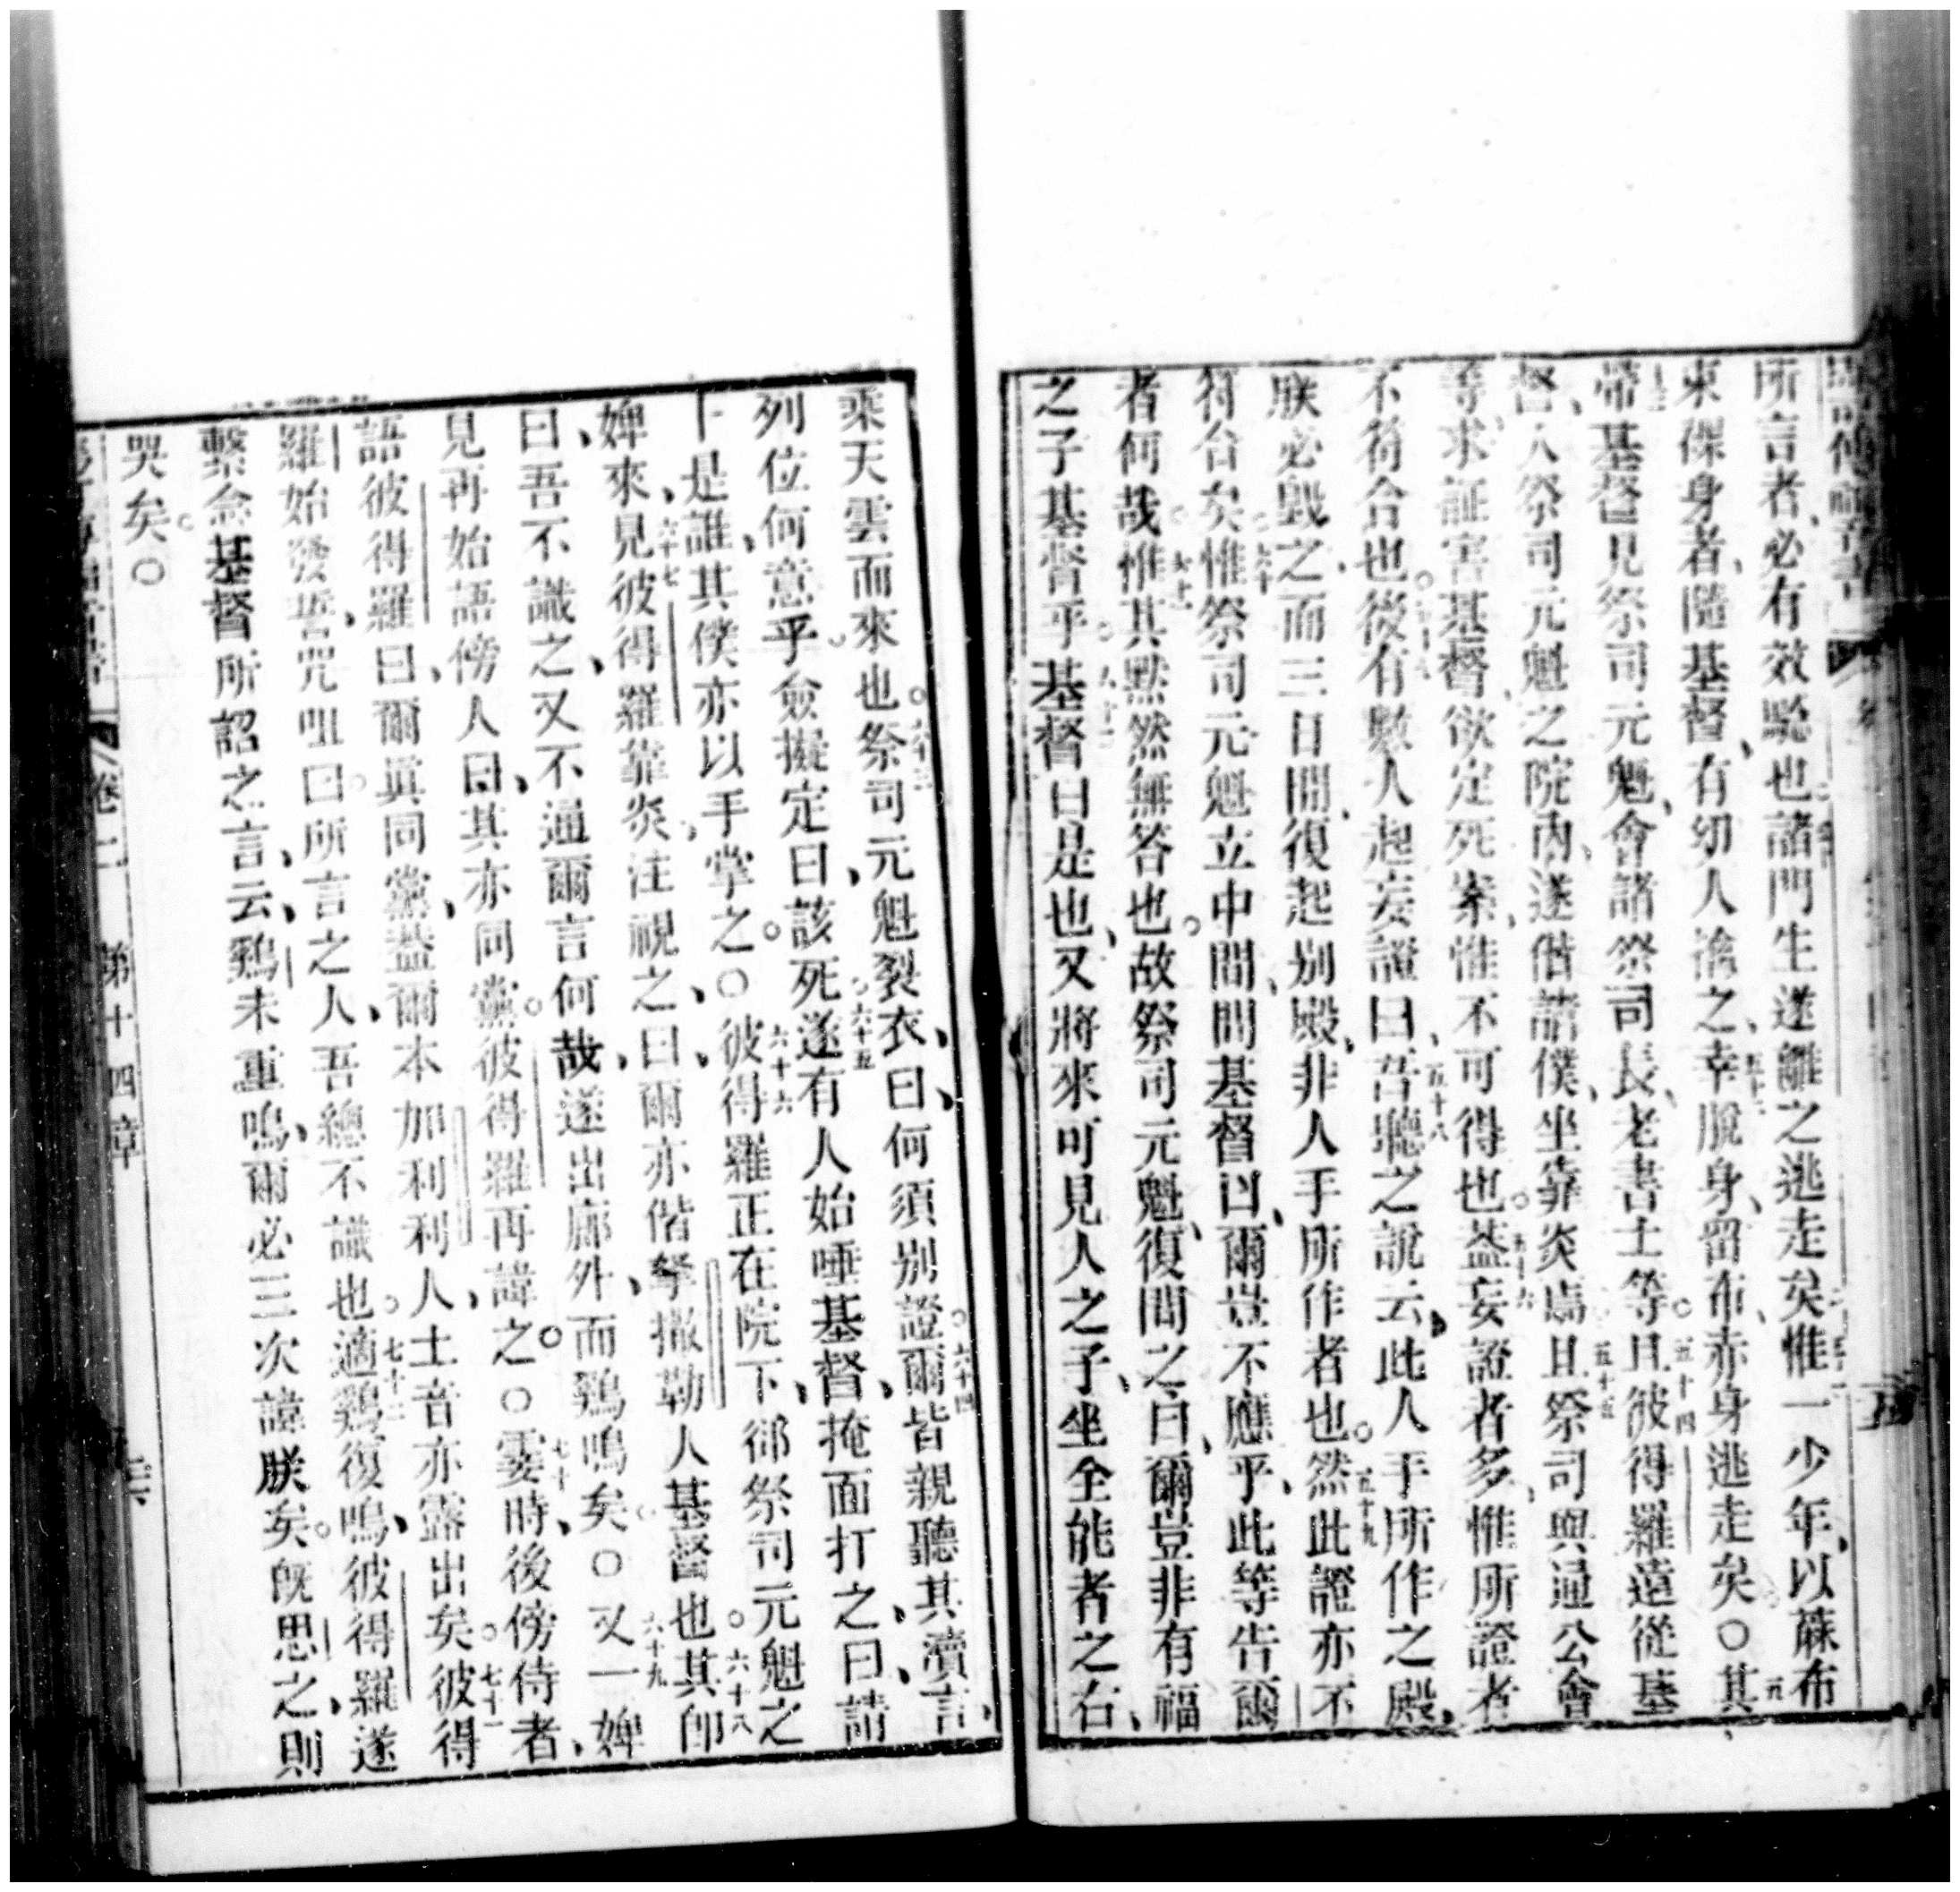 所言者必有效驗也諸門生遂離之逃走矣惟一少年以蔴布
束裸身者隨基督有幼人擒之幸脫身留布赤身逃走矣〇其
帶基督見祭司元魁會諸祭司長老書士等五十四且彼得羅遠從基
督入祭司元魁之院內遂偕諸僕坐靠炎焉五十五且祭司與通公會
等求証害基督欲定死案惟不可得也五十六蓋妄證者多惟所證者
不符合也後有數人起妄證曰五十八吾聽之說云此人手所作之殿
朕必毀之而三日間復起別殿非人手所作者也五十九然此證亦不
符合矣六十惟祭司元魁立中間問基督曰爾豈不應乎此等告爾
者何哉六十一惟其默然無答也故祭司元魁復問之曰爾豈非有福
之子基督乎六十二基督曰是也又將來可見人之子坐全能者之右
乘天雲而來也六十三祭司元魁裂衣曰何須別證六十四爾皆親聽其瀆言
列位何意乎僉擬定曰該死六十五遂有人始唾基督掩面打之曰請
卜是誰其僕亦以手掌之〇六十六彼得羅正在院下祭司元魁之
婢來六十七見彼得羅靠炎注視之曰爾亦偕拏撒勒人基督也六十八其卽
曰吾不識之又不通爾言何哉遂出廊外而鷄鳴矣〇六十九又一婢
見再始語傍人曰其亦同黨彼得羅再諱之〇七十霎時後傍侍者
語彼得羅曰爾眞同黨蓋爾本加利利人士音亦露出矣七十一彼得
羅始發誓咒咀曰所言之人吾總不識也七十二適鷄復鳴彼得羅遂
繫念基督所詔之言云鷄未重鳴爾必三次諱朕矣旣思之則
哭矣〇
卷二 第十四章